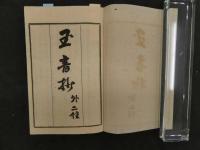 玉青抄
外二種